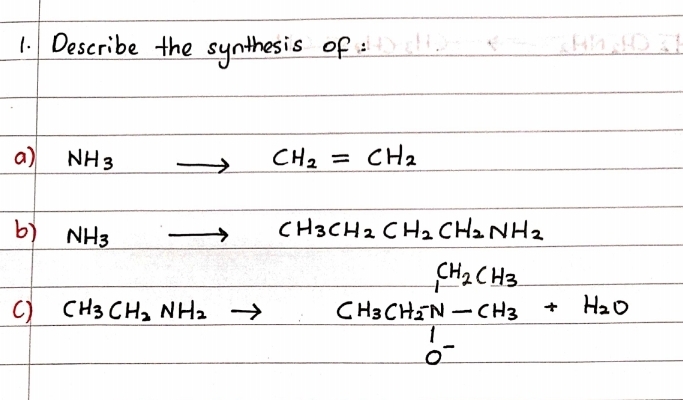 1. Describe the synthesis of :
a) NH3 → CH2 = CH2
b) NH3 → CH3CH2CH2CH2NH2
CH2CH3
c) CH3CH2NH2 → CH3CH2-N-CH3 + H2O
O-